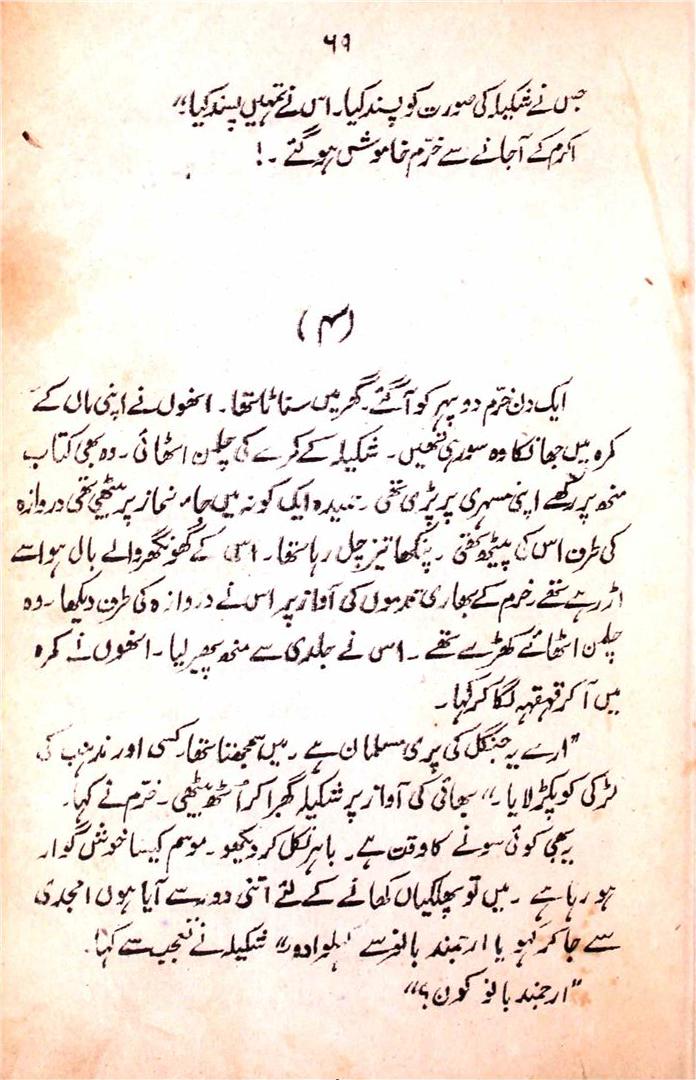 ۶۹
جس نے شکیلہ کی صورت کو پسند کیا۔ اس نے تمہیں پسند کیا"
اکرم کے آجانے سے خرّم خاموش ہو گئے۔!
(۴)
ایک دن خرّم دوپہر کو آگئے۔ گھر میں سناٹا تھا۔ انھوں نے اپنی ماں کے
کمرہ میں جھانکا وہ سو رہی تھیں۔ شکیلہ کے کمرے کی چلمن اٹھائی۔ وہ بھی کتاب
منھ پر رکھے اپنی مسہری پر پڑی تھی۔ ایک کونہ میں جاء نماز پر بیٹھی تھی دروازہ
کی طرف اس کی پیٹھ تھی۔ پنکھا تیز چل رہا تھا۔ اس کے گھونگھر والے بال ہوا سے
اڑ رہے تھے۔ خرم کے بھاری قدموں کی آواز پر اس نے دروازہ کی طرف دیکھا۔ وہ
چلمن اٹھائے کھڑے تھے۔ اس نے جلدی سے منھ پھیر لیا۔ انھوں نے کمرہ
میں آکر قہقہہ لگا کر کہا۔
"ارے یہ جنگل کی پری مسلمان ہے۔ میں سمجھتا تھا کسی اور مذہب کی
لڑکی کو پکڑ لایا۔" بھائی کی آواز پر شکیلہ گھبرا کر اُٹھ بیٹھی۔ خرّم نے کہا۔
یہ بھی کوئی سونے کا وقت ہے۔ باہر نکل کر دیکھو۔ موسم کیسا خوش گوار
ہو رہا ہے۔ میں تو پھلکیاں کھانے کے لئے اتنی دور سے آیا ہوں امجدی
سے جا کر کہو یا ارجمند بانو سے کہلوا دو" شکیلہ نے تعجب سے کہا۔
"ارجمند بانو کون؟"